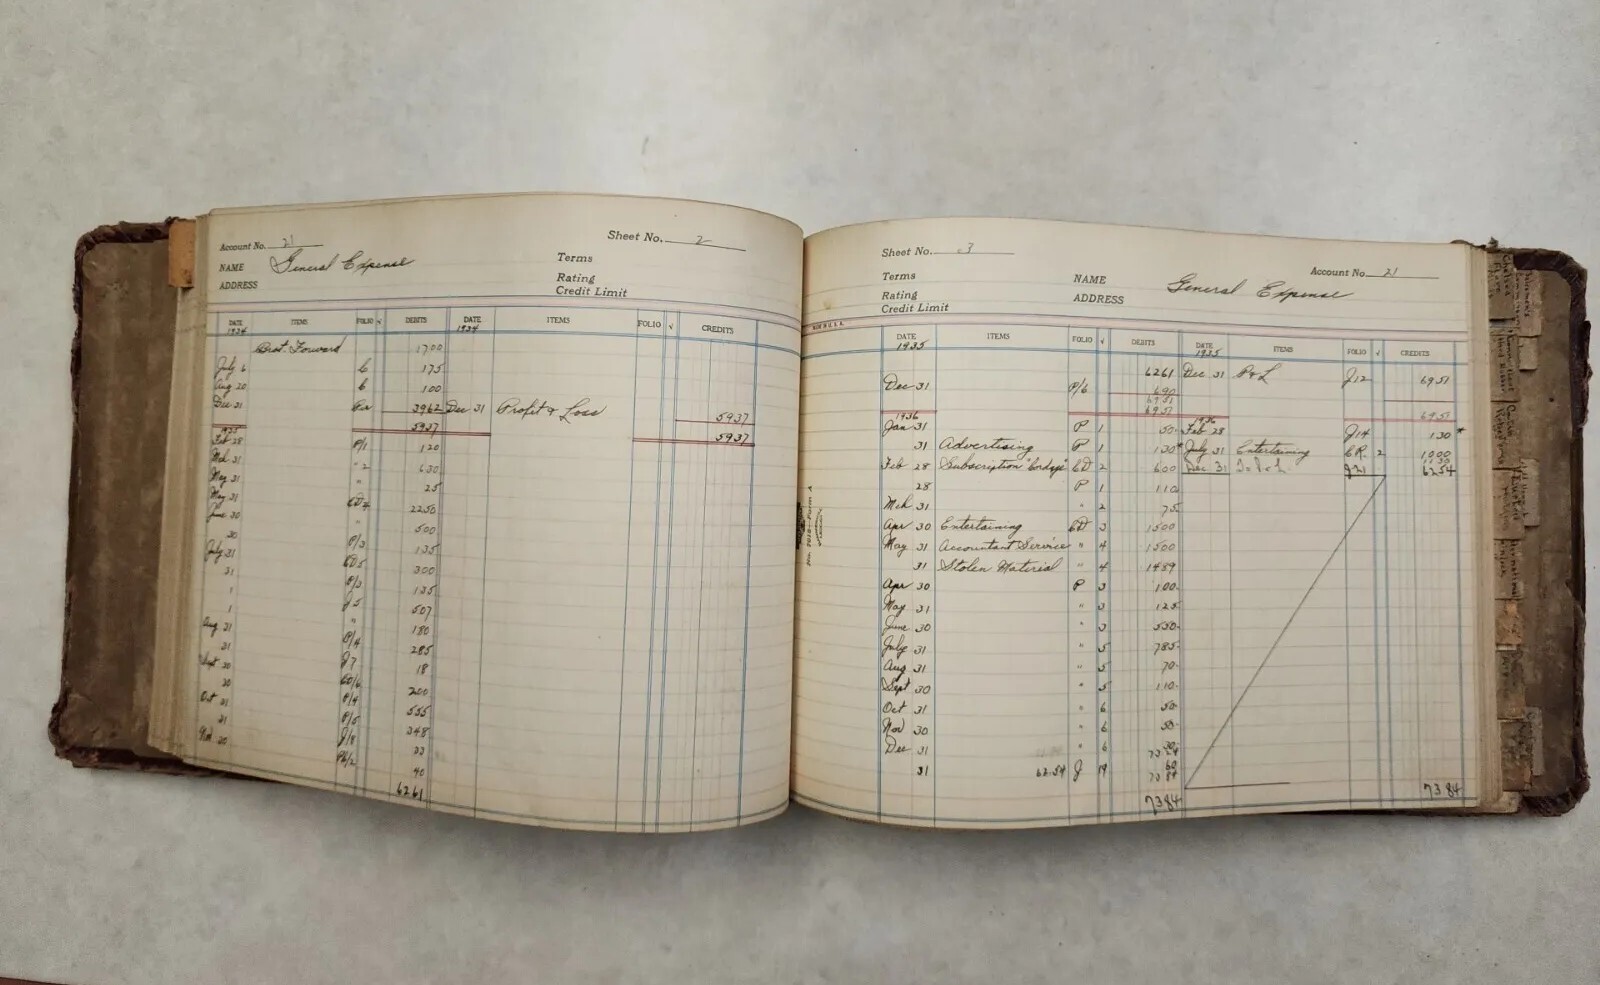 Account No. 21
Sheet No. 2
NAME General Expense
Terms
ADDRESS
Rating
Credit Limit
DATE ITEMS FOLIO √ DEBITS DATE ITEMS FOLIO √ CREDITS
1934 1934
Brot. Forward 1700
July 6 C 175
Aug 20 C 100
Dec 31 3962 Dec 31 Profit & Loss 5937
5937 5937
1935
Feb 28 P/1 120
Mch 31 " 2 630
May 31 " 25
May 31 CD4 2250
June 30 " 500
30 P/3 135
July 31 CD5 300
31 P/3 135
1 J5 507
1 " 180
Aug 31 P/4 285
31 J7 18
Sept 30 CD/6 200
30 P/4 555
Oct 31 P/5 348
31 J/8 33
Nov 30 40
6261
Sheet No. 3
Account No. 21
Terms
NAME General Expense
Rating
ADDRESS
Credit Limit
DATE ITEMS FOLIO √ DEBITS DATE ITEMS FOLIO √ CREDITS
1935 1935
6261 Dec 31 P & L J12 6951
Dec 31 P/6 690
6951
6951 6951
1936 1936
Jan 31 P 1 50 Feb 28 J14 130 *
31 Advertising P 1 130 * July 31 Entertaining CR 2 1000
Feb 28 Subscription CD 2 600 Dec 31 J21 6254
28 P 1 110
Mch 31 " 2 75
Apr 30 Entertaining CD 3 1500
May 31 Accountant Service " 4 1500
31 Stolen Material " 4 1489
Apr 30 P 3 100
May 31 " 3 125
June 30 " 3 550
July 31 " 5 785
Aug 31 " 5 70
Sept 30 " 5 110
Oct 31 " 6 50
Nov 30 " 6 50
Dec 31 " 6 30
31 6254 J 19 60
7384 7384